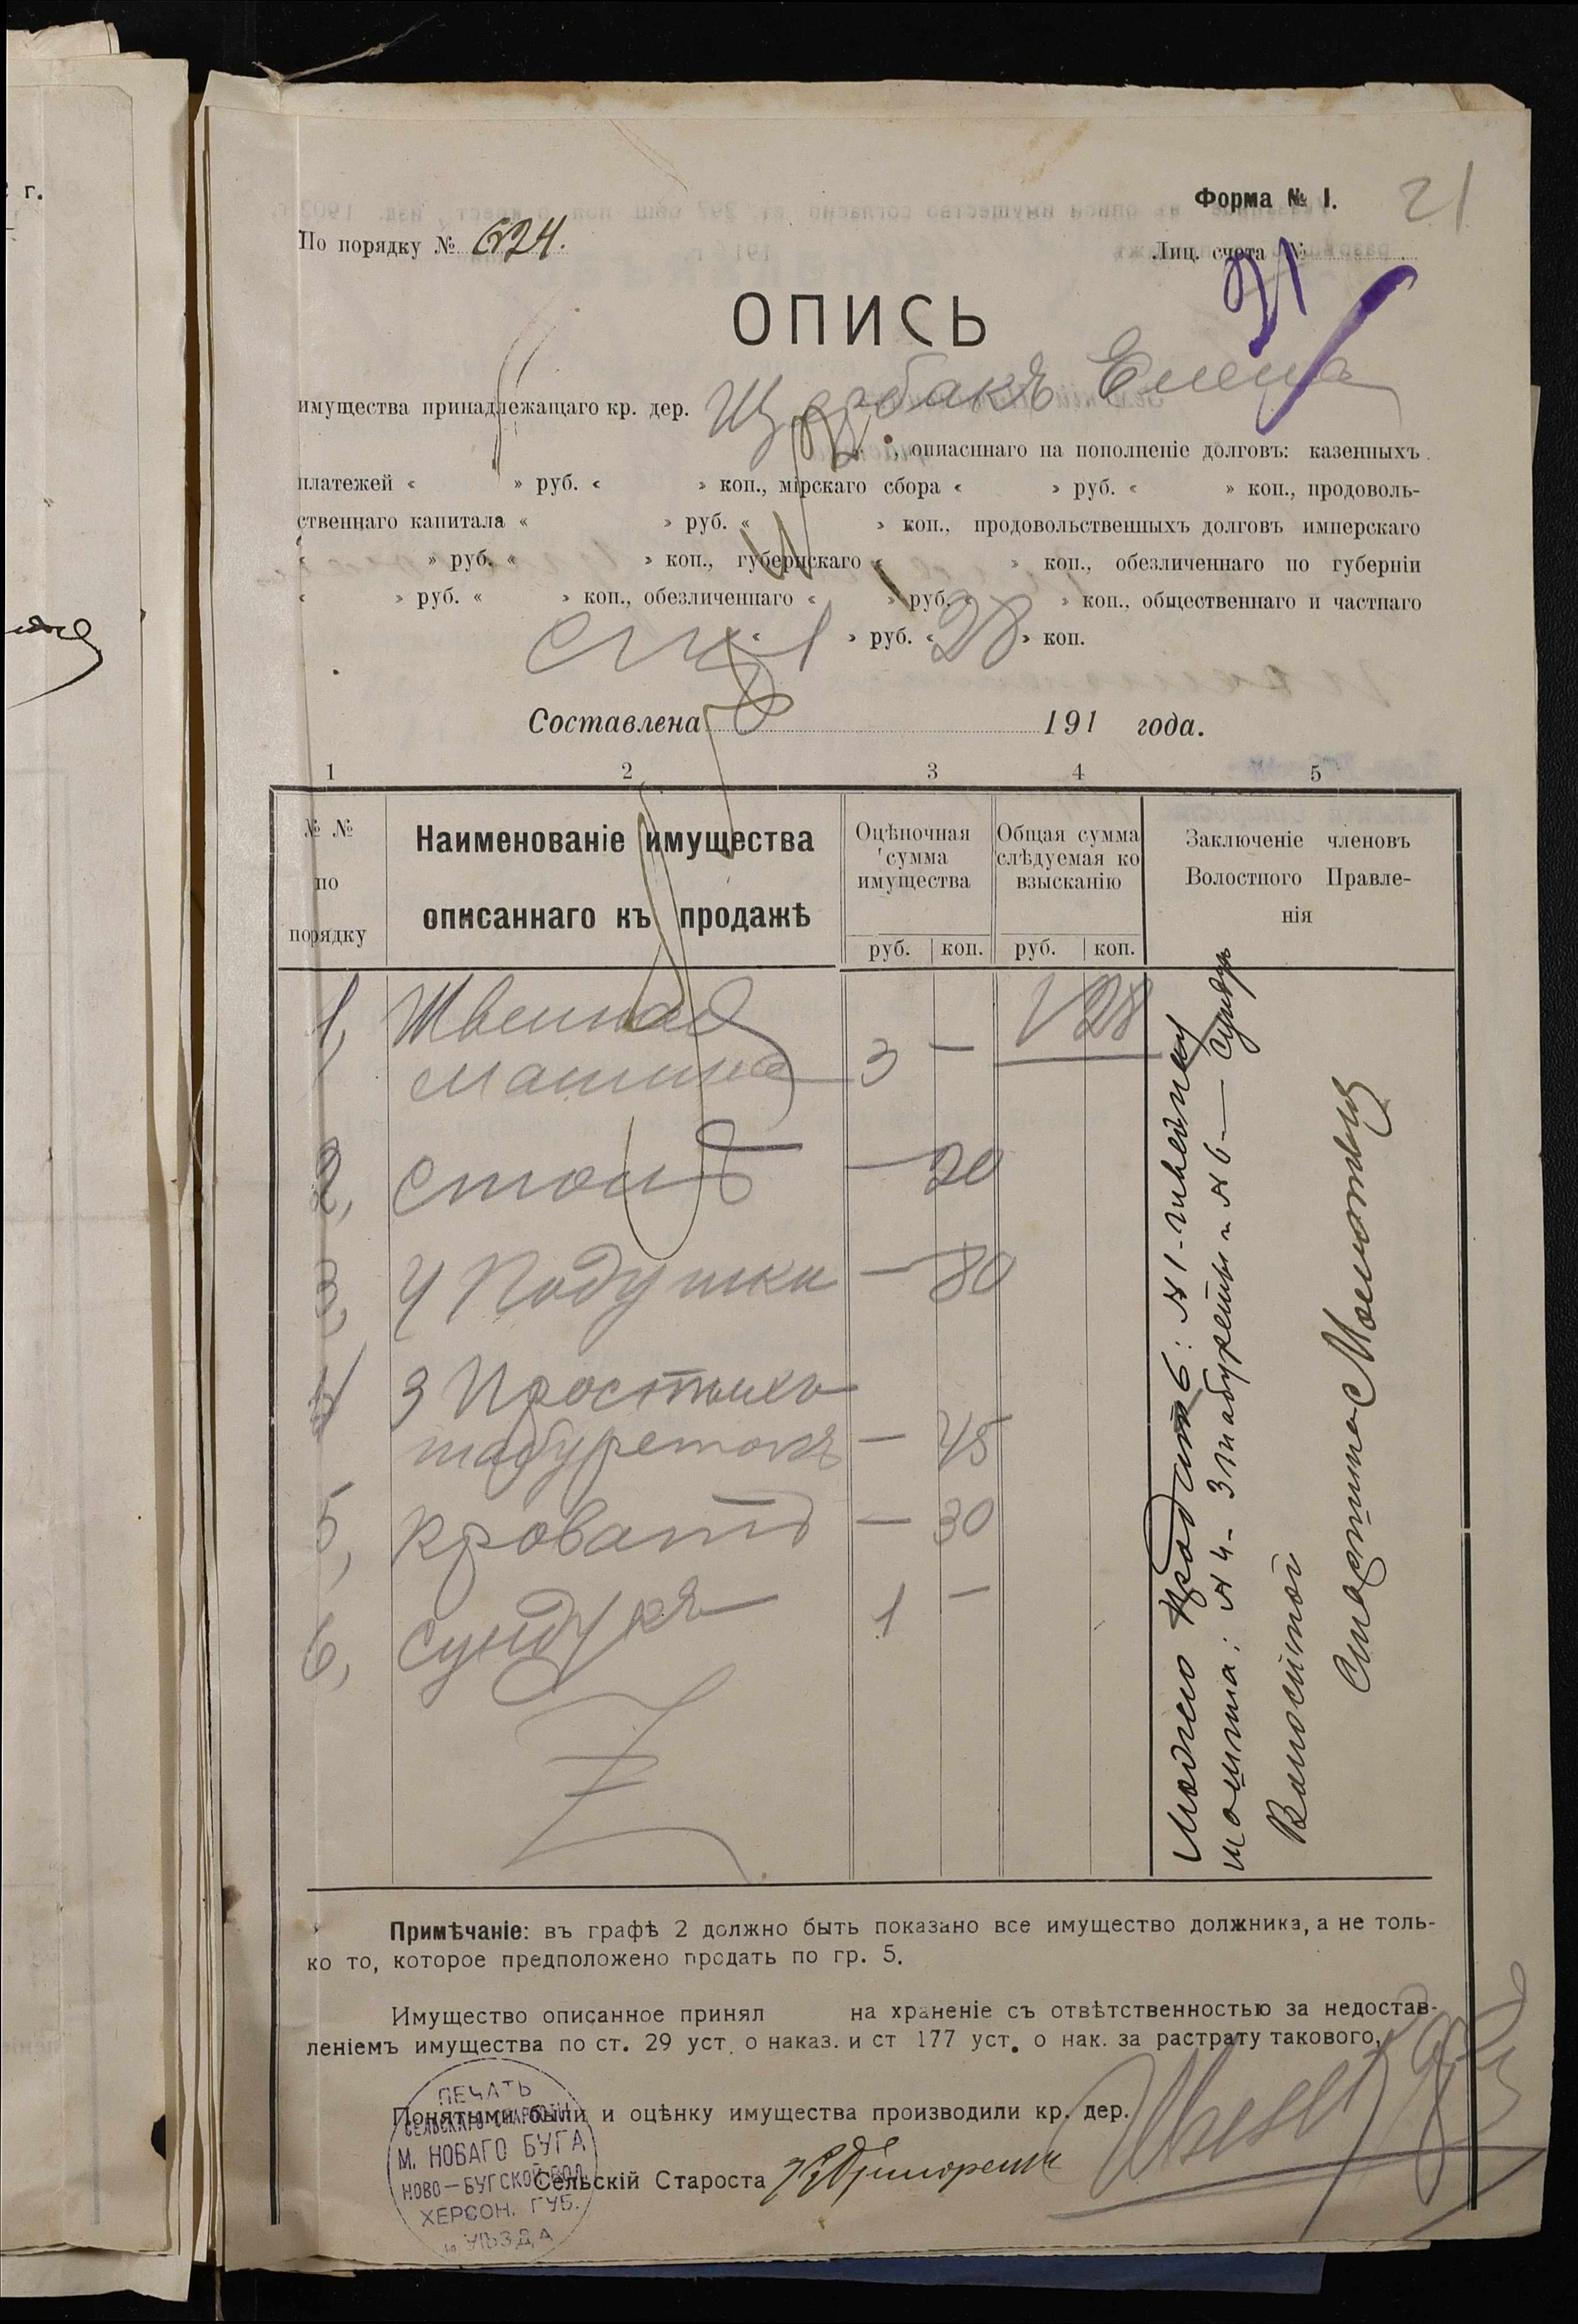 г.
Форма № I.
21
По порядку № 624.
Лиц. счета №
21
ОПИСЬ
имущества принадлежащаго кр. дер. Щербакъ Елена
, описаннаго на пополненіе долговъ: казенныхъ
платежей « » руб. « » коп., мірскаго сбора « » руб. « » коп., продоволь-
ственнаго капитала « » руб. « » коп., продовольственныхъ долговъ имперскаго
« » руб. « » коп., губернскаго « » коп., обезличеннаго по губерніи
« » руб. « » коп., обезличеннаго « » руб. « » коп., общественнаго и частнаго
« 1 » руб. « 28 » коп.
Составлена 191 года.
1 2 3 4 5
№ № по порядку
Наименованіе имущества
описаннаго къ продажѣ
Оцѣночная сумма имущества
Общая сумма слѣдуемая ко взысканію
Заключеніе членовъ
Волостного Правле-
нія
руб. коп. руб. коп.
1, Швейная 1 28
машина 3 —
2, столъ — 20
3, 4 Подушки — 80
4 3 Простыхъ
табуретокъ — 45
5, кровать — 30
6, сундукъ 1 —
Можно продать: № 1 - швейную
машина; № 4 - 3 табуреты и № 6 — сундукъ
Волостной
Старшина
Примѣчаніе: въ графѣ 2 должно быть показано все имущество должника, а не толь-
ко то, которое предположено продать по гр. 5.
Имущество описанное принял на храненіе съ отвѣтственностью за недостав-
леніемъ имущества по ст. 29 уст. о наказ. и ст 177 уст. о нак. за растрату такового.
Понятыми были и оцѣнку имущества производили кр. дер.
Сельскій Староста
ПЕЧАТЬ
СЕЛЬСКАГО СТАРОСТЫ
М. НОВАГО БУГА
НОВО—БУГСКОЙ ВОЛ.
ХЕРСОН. ГУБ.
и УѢЗДА